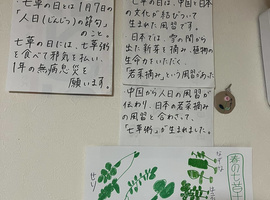 七草の日とは1月7日の
「人日(じんじつ)の節句」
のこと。
七草の日には、七草粥
を食べて邪気を払い、
1年の無病息災を
願います。
七草の日は、中国と日本
の文化が結びついて
生まれた風習です。
日本では、雪の間から
出た新芽を摘み、植物の
生命力をいただく
「若菜摘み」という風習があった
中国から人日の風習が
伝わり、日本の若菜摘み
の風習と合わさって、
「七草粥」が生まれました。
春の七草
なずな
せり